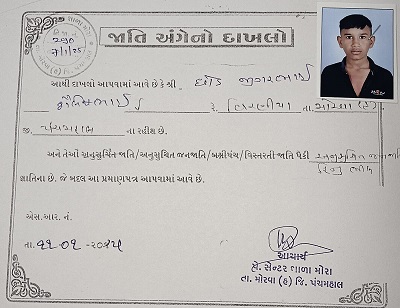 જાતિ અંગેનો દાખલો
૨૭૦
7/1/25
આથી દાખલો આપવામાં આવે છે કે શ્રી
રે. તા. મોરવા (હ)
જી. પંચમહાલ ના રહીશ છે.
અને તેઓ અનુસુચિત જાતિ/અનુસુચિત જનજાતિ/બક્ષીપંચ/વિસ્તરતી જાતિ પૈકી અનુસુચિત જનજાતિ
હિન્દુ ભીલ
જ્ઞાતિના છે. જે બદલ આ પ્રમાણપત્ર આપવામાં આવે છે.
એસ.આર. નં.
તા.
આચાર્ય
સેન્ટર શાળા મોરા
તા. મોરવા (હ) જિ. પંચમહાલ